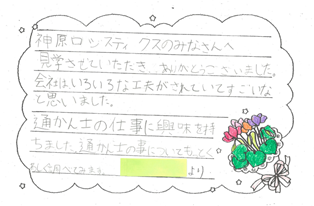 神原ロジスティクスのみなさんへ
見学させていただき、ありがとうございました。
会社はいろいろな工夫がされていてすごいな
と思いました。
通かん士の仕事に興味を持
ちました。通かん士の事についてもっとく
わしく調べてみます。
より